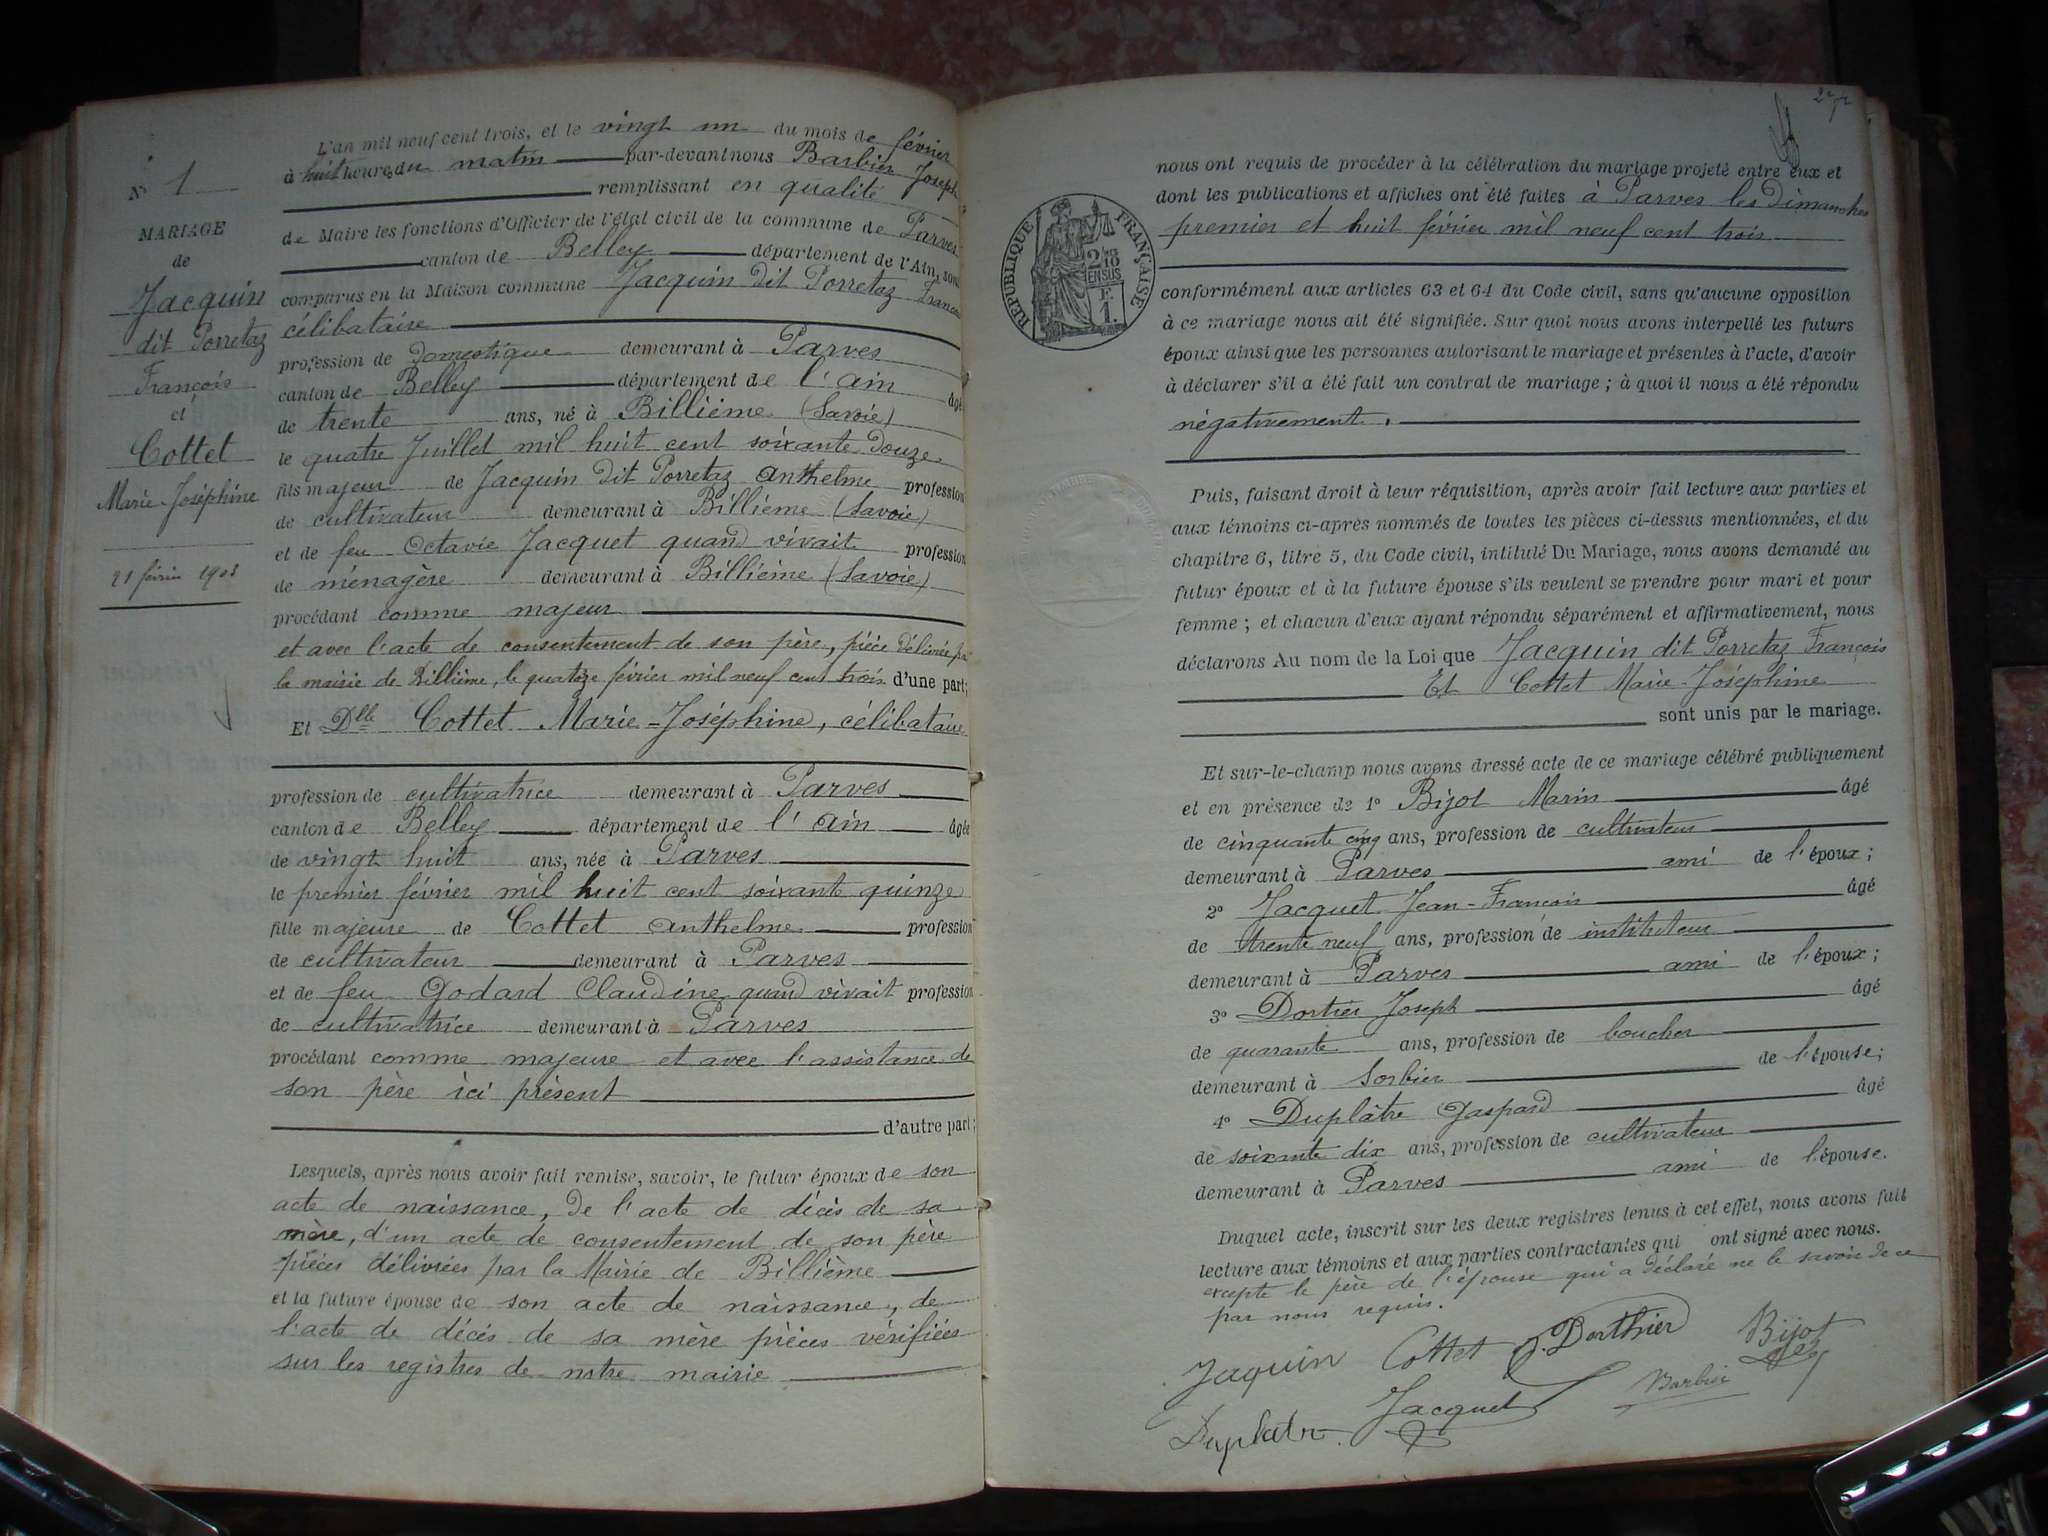 N° 1
MARIAGE
de
Jacquin
dit Porretaz
François
et
Cottet
Marie-Joséphine
21 février 1903
L'an mil neuf cent trois, et le vingt un du mois de février
à huit heure du matin par-devant nous Barbier Joseph
remplissant en qualité
de Maire les fonctions d'Officier de l'état civil de la commune de Parves
canton de Belley département de l'Ain, sont
comparus en la Maison commune Jacquin dit Porretaz François
célibataire
profession de domestique demeurant à Parves
canton de Belley département de l'ain âgé
de trente ans, né à Billième (Savoie)
le quatre Juillet mil huit cent soixante douze
fils majeur de Jacquin dit Porretaz anthelme profession
de cultivateur demeurant à Billième (Savoie)
et de feu Octavie Jacquet quand vivait profession
de ménagère demeurant à Billième (Savoie)
procédant comme majeur
et avec l'acte de consentement de son père, pièce délivrée par
la mairie de Billième, le quatorze février mil neuf cent trois d'une part;
Et Dlle Cottet Marie-Joséphine, célibataire
profession de cultivatrice demeurant à Parves
canton de Belley département de l'ain âgée
de vingt huit ans, née à Parves
le premier février mil huit cent soixante quinze
fille majeure de Cottet anthelme profession
de cultivateur demeurant à Parves
et de feu Godard Claudine quand vivait profession
de cultivatrice demeurant à Parves
procédant comme majeure et avec l'assistance de
son père ici présent
d'autre part;
Lesquels, après nous avoir fait remise, savoir, le futur époux de son
acte de naissance, de l'acte de décès de sa
mère, d'un acte de consentement de son père
pièces délivrées par la Mairie de Billième
et la future épouse de son acte de naissance, de
l'acte de décès de sa mère pièces vérifiées
sur les registres de notre mairie
nous ont requis de procéder à la célébration du mariage projeté entre eux et
dont les publications et affiches ont été faites à Parves les Dimanches
premier et huit février mil neuf cent trois
RÉPUBLIQUE FRANÇAISE
2/10
EN SUS
F.
1.
conformément aux articles 63 et 64 du Code civil, sans qu'aucune opposition
à ce mariage nous ait été signifiée. Sur quoi nous avons interpellé les futurs
époux ainsi que les personnes autorisant le mariage et présentes à l'acte, d'avoir
à déclarer s'il a été fait un contrat de mariage; à quoi il nous a été répondu
négativement.
Puis, faisant droit à leur réquisition, après avoir fait lecture aux parties et
aux témoins ci-après nommés de toutes les pièces ci-dessus mentionnées, et du
chapitre 6, titre 5, du Code civil, intitulé Du Mariage, nous avons demandé au
futur époux et à la future épouse s'ils veulent se prendre pour mari et pour
femme; et chacun d'eux ayant répondu séparément et affirmativement, nous
déclarons Au nom de la Loi que Jacquin dit Porretaz François
Et Cottet Marie-Joséphine
sont unis par le mariage.
Et sur-le-champ nous avons dressé acte de ce mariage célébré publiquement
et en présence de 1° Bijot Marin âgé
de cinquante cinq ans, profession de cultivateur
demeurant à Parves ami de l'époux;
2° Jacquet Jean-François âgé
de trente neuf ans, profession de instituteur
demeurant à Parves ami de l'époux;
3° Dortier Joseph âgé
de quarante ans, profession de boucher
demeurant à Sorbier de l'épouse;
4° Duplâtre Gaspard âgé
de soixante dix ans, profession de cultivateur
demeurant à Parves ami de l'épouse.
Duquel acte, inscrit sur les deux registres tenus à cet effet, nous avons fait
lecture aux témoins et aux parties contractantes qui ont signé avec nous.
excepté le père de l'épouse qui a déclaré ne le savoir de ce
par nous requis.
Jaquin Cottet J. Dorthier Bijot
Duplatre Jacquet Barbier